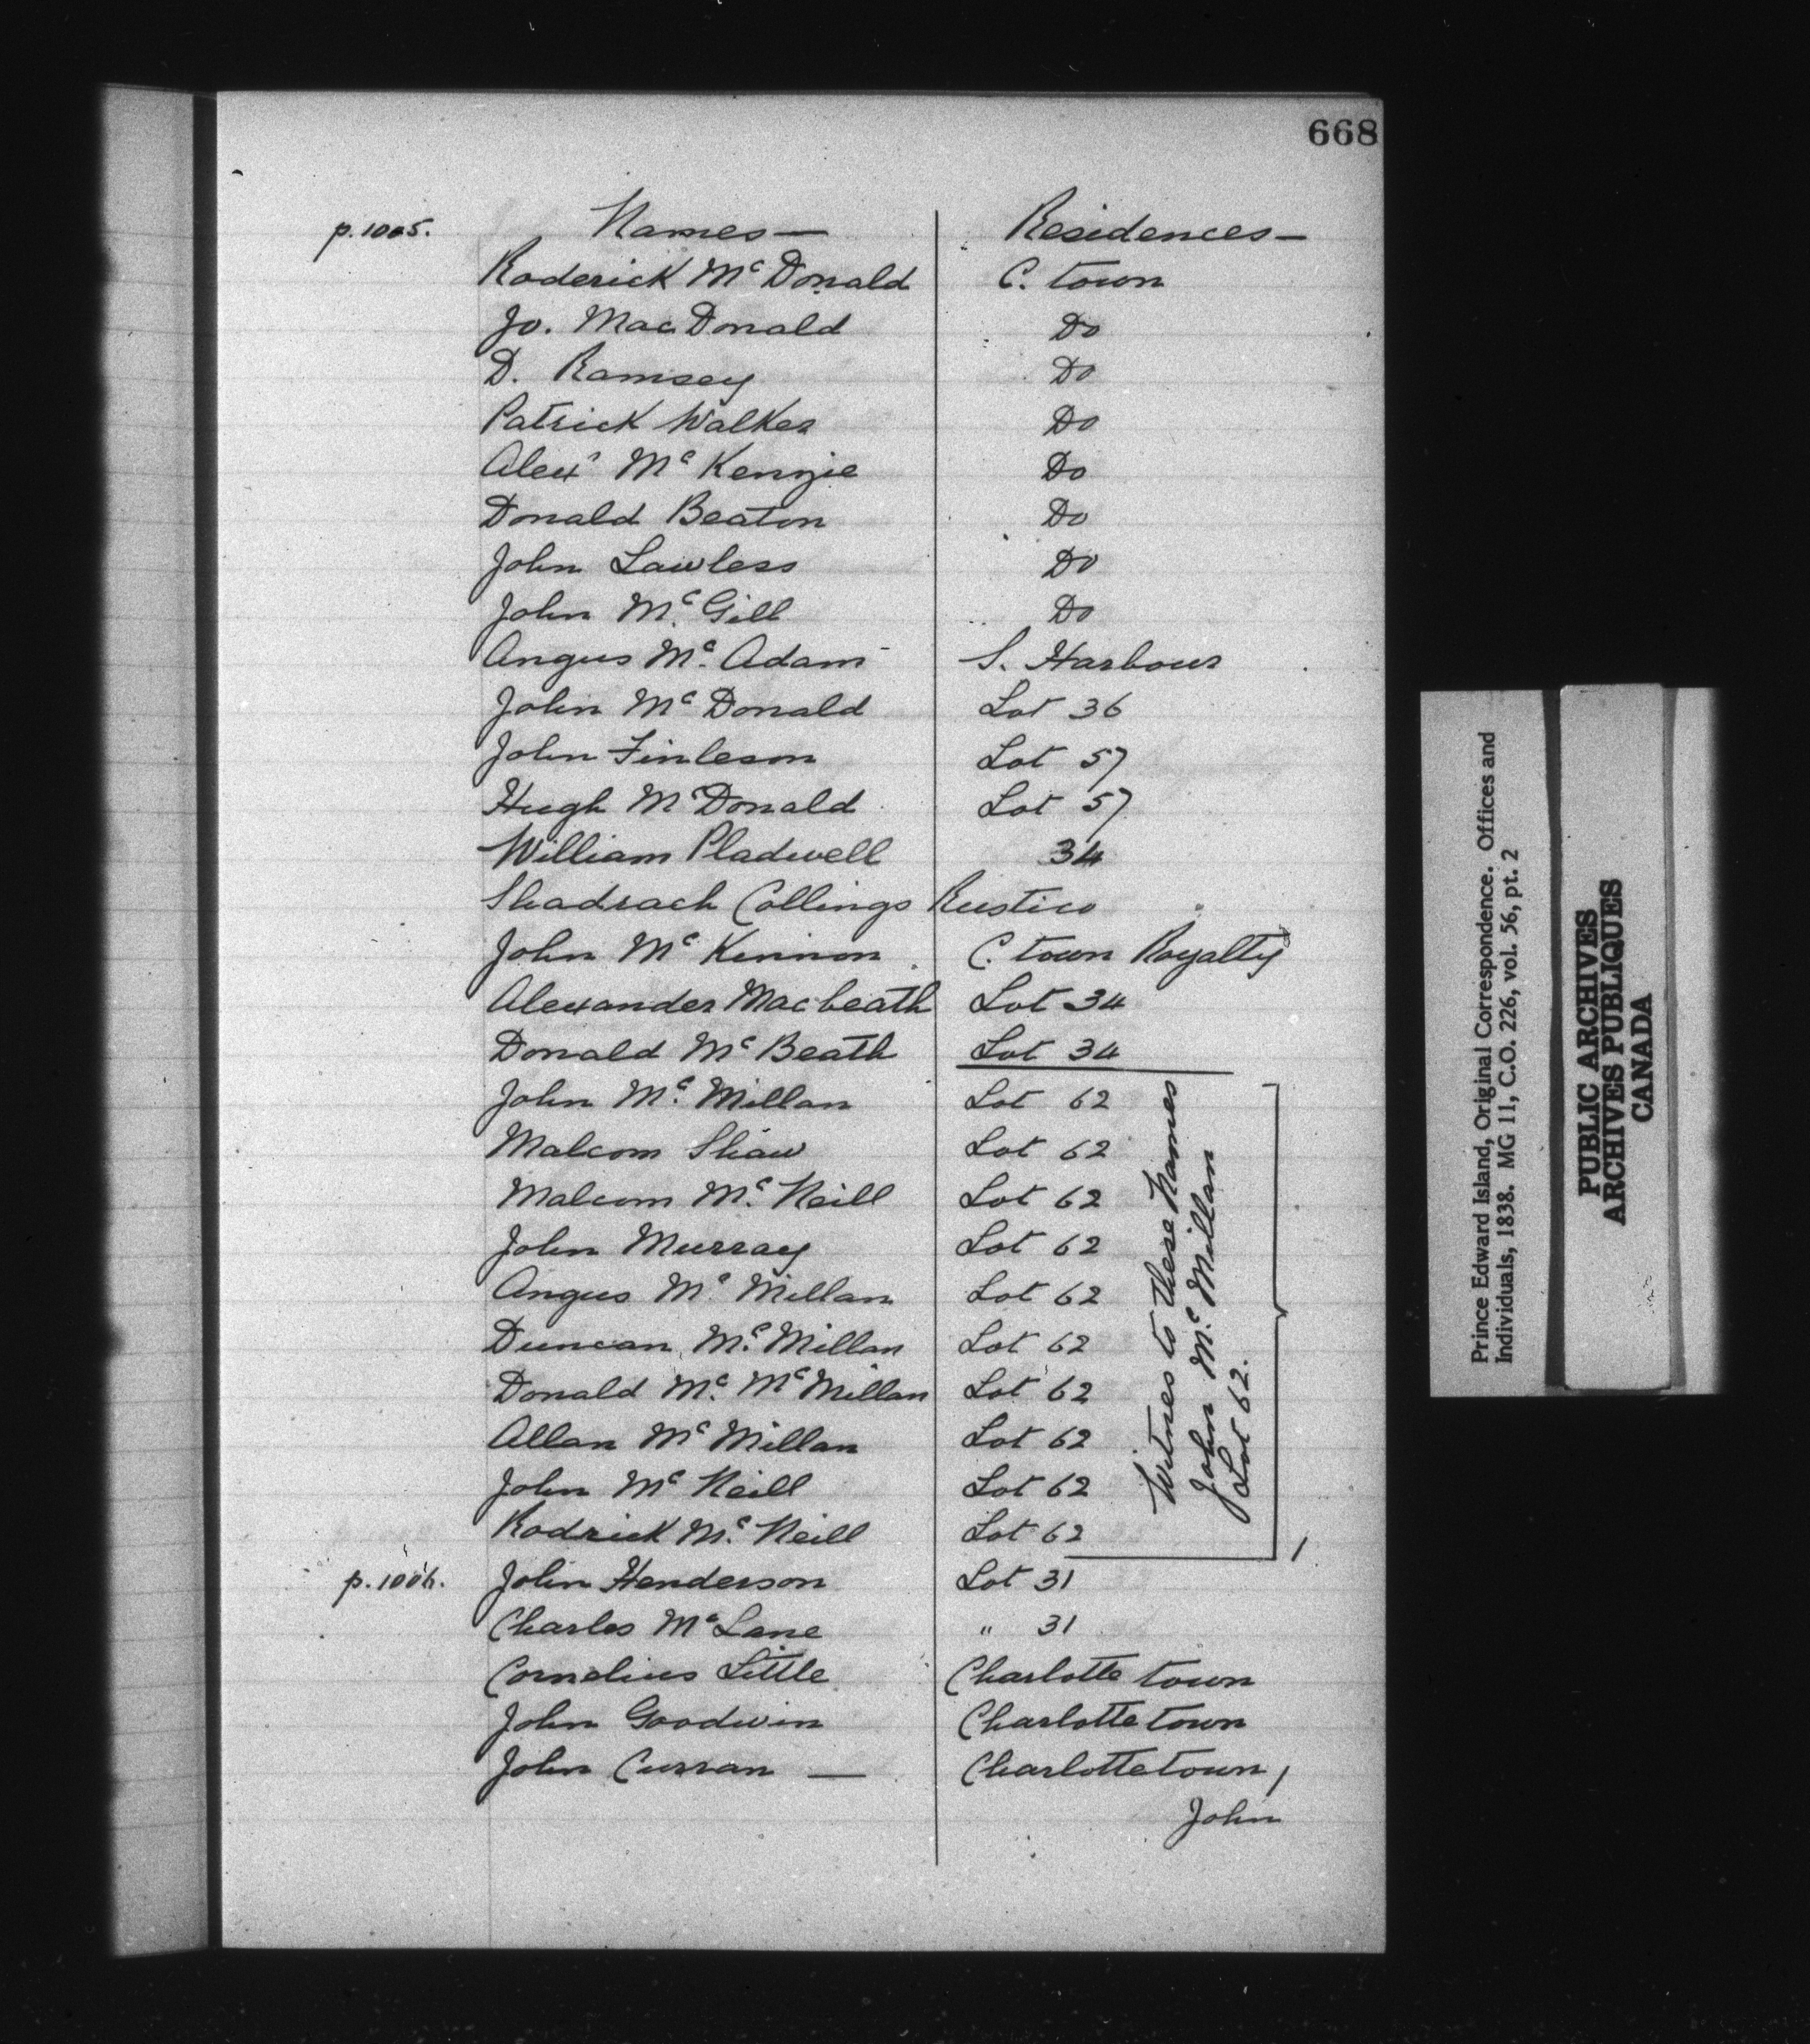 668
p. 1005. Names — Residences —
Roderick Mc Donald C. town
Jo. MacDonald Do
D. Ramsey Do
Patrick Walker Do
Alexr Mc Kenzie Do
Donald Beaton Do
John Lawless Do
John Mc. Gill Do
Angus Mc. Adam S. Harbour
John Mc Donald Lot 36
John Finleson Lot 57
Hugh McDonald Lot 57
William Pladwell 34
Shadrach Collings Rustico
John Mc Kinnon C. town Royalty
Alexander Macbeath Lot 34
Donald Mc Beath Lot 34
John Mc. Millan Lot 62
Malcom Shaw Lot 62
Malcom Mc. Neill Lot 62
John Murray Lot 62
Angus Mc. Millan Lot 62
Duncan Mc. Millan Lot 62
Donald Mc. McMillan Lot 62
Allan Mc Millan Lot 62
John Mc Neill Lot 62
Rodrick Mc. Neill Lot 62
Witness to these Names
John Mc. Millan
Lot 62.
p. 1006. John Henderson Lot 31
Charles Mc Lane " 31
Cornelius Little Charlotte town
John Goodwin Charlotte town
John Curran — Charlottetown,
John
Prince Edward Island, Original Correspondence. Offices and
Individuals, 1838. MG 11, C.O. 226, vol. 56, pt. 2
PUBLIC ARCHIVES
ARCHIVES PUBLIQUES
CANADA